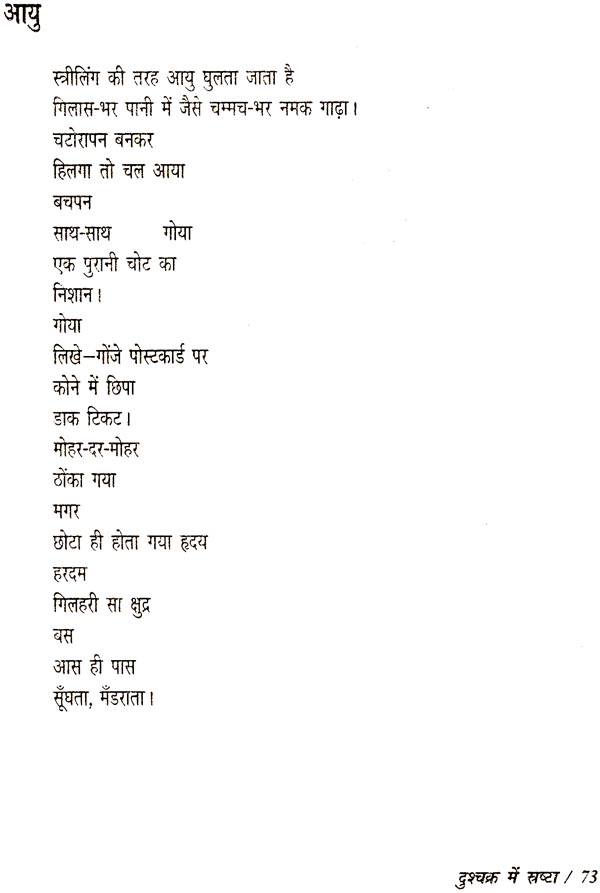 आयु
स्त्रीलिंग की तरह आयु घुलता जाता है
गिलास-भर पानी में जैसे चम्मच-भर नमक गाढ़ा।
चटोरापन बनकर
हिलगा तो चल आया
बचपन
साथ-साथ गोया
एक पुरानी चोट का
निशान।
गोया
लिखे–गोंजे पोस्टकार्ड पर
कोने में छिपा
डाक टिकट।
मोहर-दर-मोहर
ठोंका गया
मगर
छोटा ही होता गया हृदय
हरदम
गिलहरी सा क्षुद्र
बस
आस ही पास
सूँघता, मँडराता।
दुश्चक्र में स्रष्टा / 73